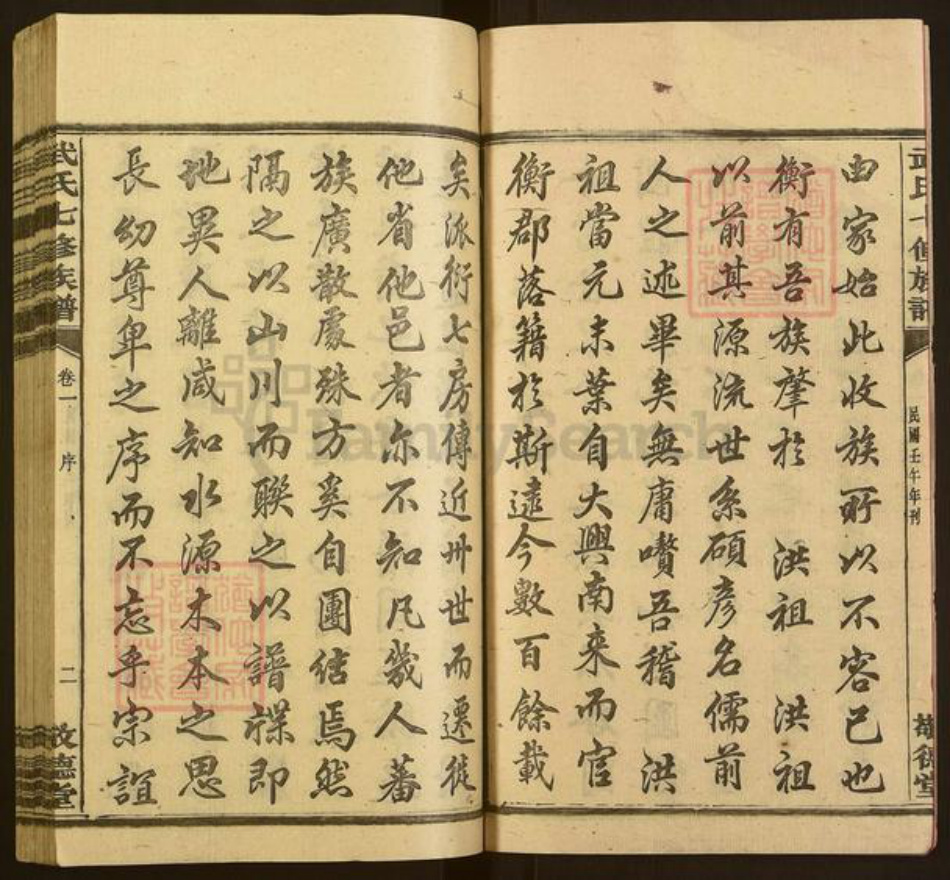 武氏七修族譜
民國壬午年刊
敬德堂
由家始此收族所以不容已也
衡有吾族肇於 洪祖 洪祖
以前其源流世系碩彥名儒前
人之述畢矣無庸囋吾稽 洪
祖當元末葉自大興南來而官
衡郡落籍於斯遠今數百餘載
矣派衍七房傳近卅世而遷徙
他省他邑者尔不知凡幾人蕃
族廣散處殊方奚自團結焉然
隔之以山川而聯之以譜牒即
地異人離咸知水源木本之思
長幼尊卑之序而不忘乎宗誼
武氏七修族譜
卷一
序
二
敬德堂
FamilySearch